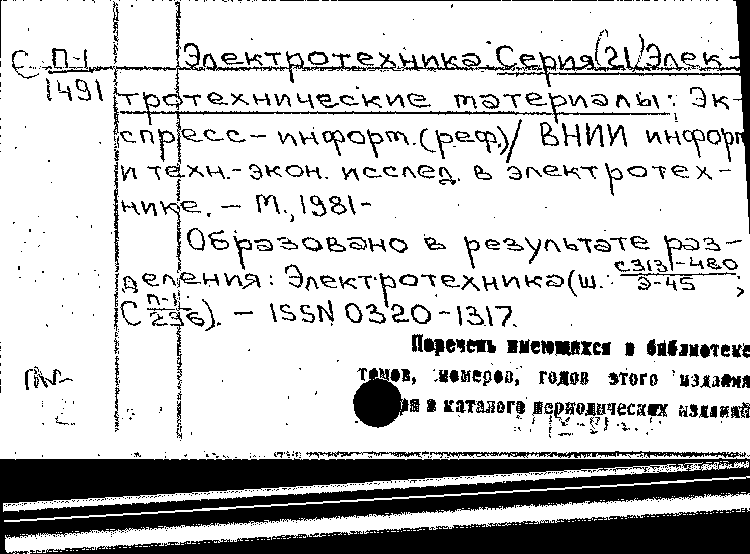 С П-1 Электротехника. Серия (21) Элек-
1491 тротехнические материалы: Эк-
спресс-информ. (реф.)/ ВНИИ информ
и техн.-экон. исслед. в электротех-
нике. - М., 1981-
Образовано в результате раз-
деления: Электротехника (ш.: с3131-480
Э-45 ;
С П-1
236). - ISSN 0320-1317.
Перечень имеющихся в библиотеке
томов, номеров, годов этого издания
в каталоге периодических изданий